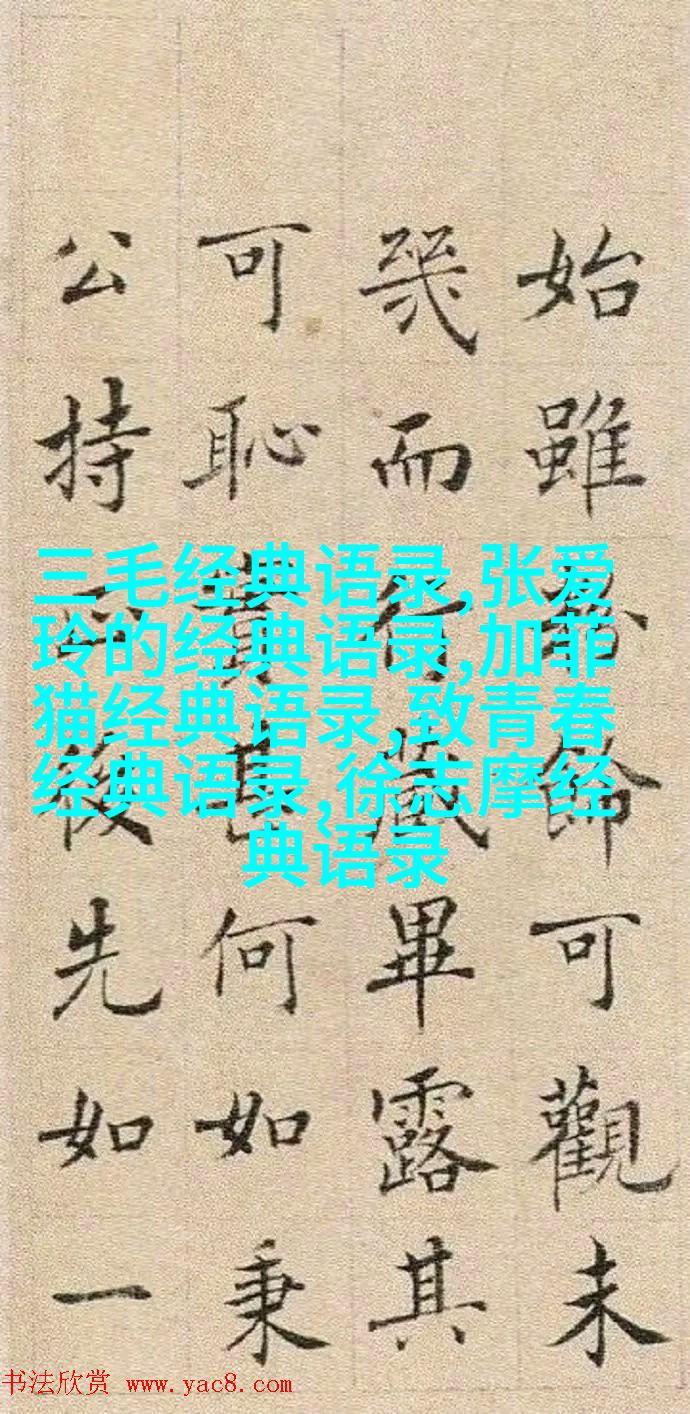 始雖飾可觀未
幾而行藏畢露其
可恥何如秉
公持後先如一
三毛经典语录,张爱
玲的经典语录,加菲
猫经典语录,致青春
经典语录,徐志摩经
典语录
书法欣赏 www.yac8.com